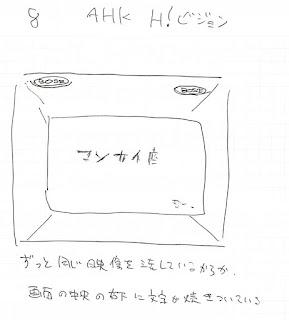 8 AHK H!ビジョン
BOSE BOSE
マンガイ座
ずっと同じ映像を流しているからか、
画面の中央の右下に文字が焼きついている